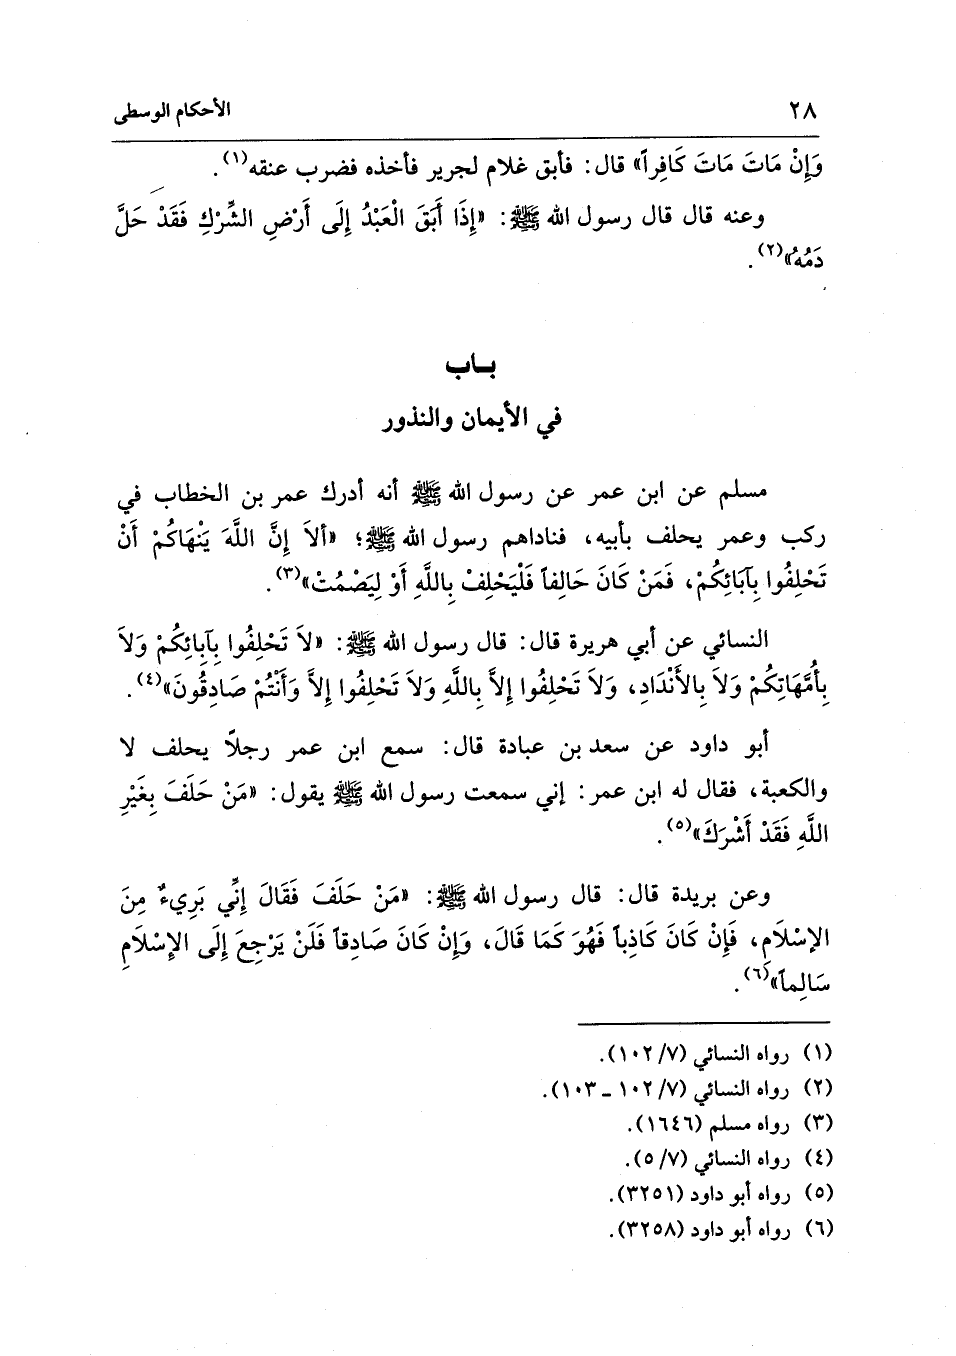 ٢٨ الأحكام الوسطى
وَإِنْ مَاتَ مَاتَ كَافِراً» قال: فأبق غلام لجرير فأخذه فضرب عنقه(١).
وعنه قال قال رسول الله ﷺ: «إِذَا أَبَقَ الْعَبْدُ إِلَى أَرْضِ الشِّرْكِ فَقَدْ حَلَّ
دَمُهُ»(٢).
بـاب
في الأيمان والنذور
مسلم عن ابن عمر عن رسول الله ﷺ أنه أدرك عمر بن الخطاب في
ركب وعمر يحلف بأبيه، فناداهم رسول الله ﷺ؛ «ألاَ إِنَّ اللَّهَ يَنْهَاكُمْ أَنْ
تَحْلِفُوا بِآبَائِكُمْ، فَمَنْ كَانَ حَالِفاً فَلْيَحْلِفْ بِاللَّهِ أَوْ لِيَصْمُتْ»(٣).
النسائي عن أبي هريرة قال: قال رسول الله ﷺ: «لاَ تَحْلِفُوا بِآبِائِكُمْ وَلاَ
بِأُمَّهَاتِكُمْ وَلاَ بِالأَنْدَادِ، وَلاَ تَحْلِفُوا إِلاَّ بِاللَّهِ وَلاَ تَحْلِفُوا إِلاَّ وَأَنْتُمْ صَادِقُونَ»(٤).
أبو داود عن سعد بن عبادة قال: سمع ابن عمر رجلاً يحلف لا
والكعبة، فقال له ابن عمر: إني سمعت رسول الله ﷺ يقول: «مَنْ حَلَفَ بِغَيْرِ
اللَّهِ فَقَدْ أَشْرَكَ»(٥).
وعن بريدة قال: قال رسول الله ﷺ: «مَنْ حَلَفَ فَقَالَ إِنِّي بَرِيءٌ مِنَ
الإسْلَامِ، فَإِنْ كَانَ كَاذِباً فَهُوَ كَمَا قَالَ، وَإِنْ كَانَ صَادِقاً فَلَنْ يَرْجِعَ إِلَى الإِسْلَامِ
سَالِماً»(٦).
(١) رواه النسائي (٧/ ١٠٢).
(٢) رواه النسائي (٧/ ١٠٢ ـ ١٠٣).
(٣) رواه مسلم (١٦٤٦).
(٤) رواه النسائي (٧/ ٥).
(٥) رواه أبو داود (٣٢٥١).
(٦) رواه أبو داود (٣٢٥٨).